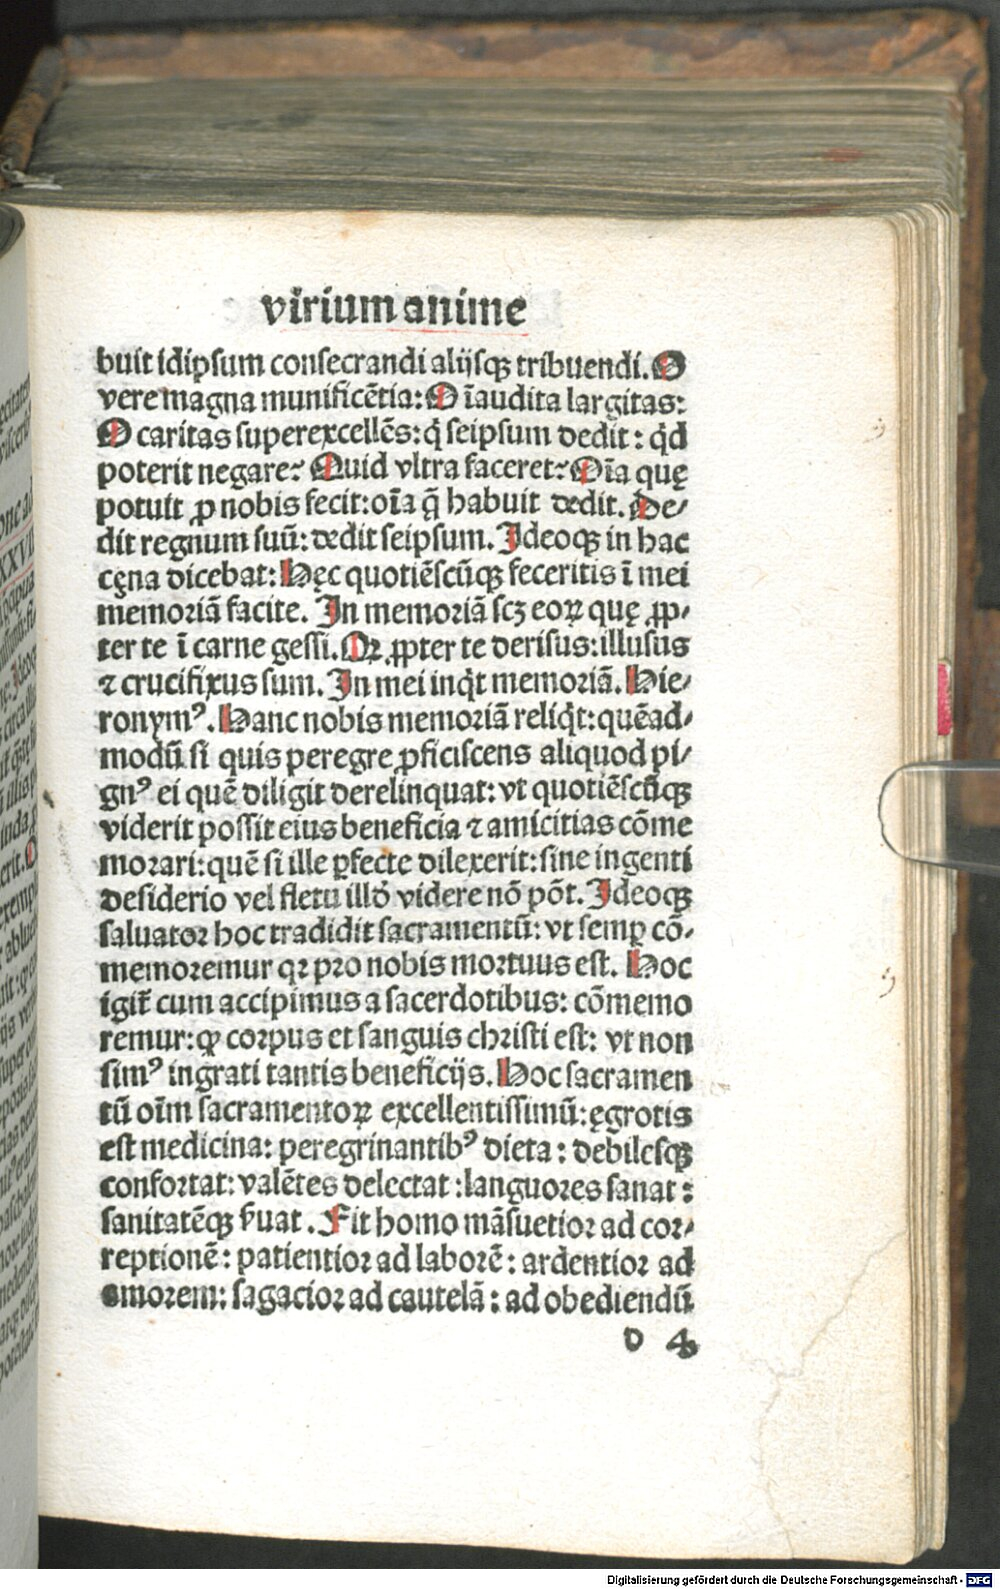 virium anime
buit idipsum consecrandi alijsqꝫ tribuendi. O
vere magna munificẽtia: O ĩaudita largitas:
O caritas superexcellẽs: q̇ seipsum dedit: qd̓
poterit negare? Quid vltra faceret? Oĩa quę
potuit ꝓ nobis fecit: oĩa q̃ habuit dedit. De/
dit regnum suũ: dedit seipsum. Ideoqꝫ in hac
cęna dicebat: Hęc quotiẽscũqꝫ feceritis ĩ mei
memoriã facite. In memoriã scꝫ eoꝝ quę ꝓp-
ter te ĩ carne gessi. Qꝛ ꝓpter te derisus: illusus
⁊ crucifixus sum. In mei inq̇t memoriã. Hie/
ronymꝰ. Hanc nobis memoriã reliq̇t: quẽad/
modũ si quis peregre ꝓficiscens aliquod pi/
gnꝰ ei quẽ diligit derelinquat: vt quotiẽscũqꝫ
viderit possit eius beneficia ⁊ amicitias cõme
morari: quẽ si ille ꝑfecte dilexerit: sine ingenti
desiderio vel fletu illd̓ videre nõ põt. Ideoqꝫ
saluator hoc tradidit sacramentũ: vt semꝑ cõ-
memoremur qꝛ pro nobis mortuus est. Hoc
igit᷑ cum accipimus a sacerdotibus: cõmemo
remur: ꝙ corpus et sanguis christi est: vt non
simꝰ ingrati tantis beneficijs. Hoc sacramen
tũ oĩm sacramentoꝝ excellentissimũ: ęgrotis
est medicina: peregrinantibꝰ dieta: debilesqꝫ
confortat: valẽtes delectat: languores sanat:
sanitatẽqꝫ ẜuat. Fit homo mãsuetior ad cor/
reptionẽ: patientior ad laborẽ: ardentior ad
amorem: sagacior ad cautelã: ad obediendũ
D 4
Digitalisierung gefördert durch die Deutsche Forschungsgemeinschaft - DFG